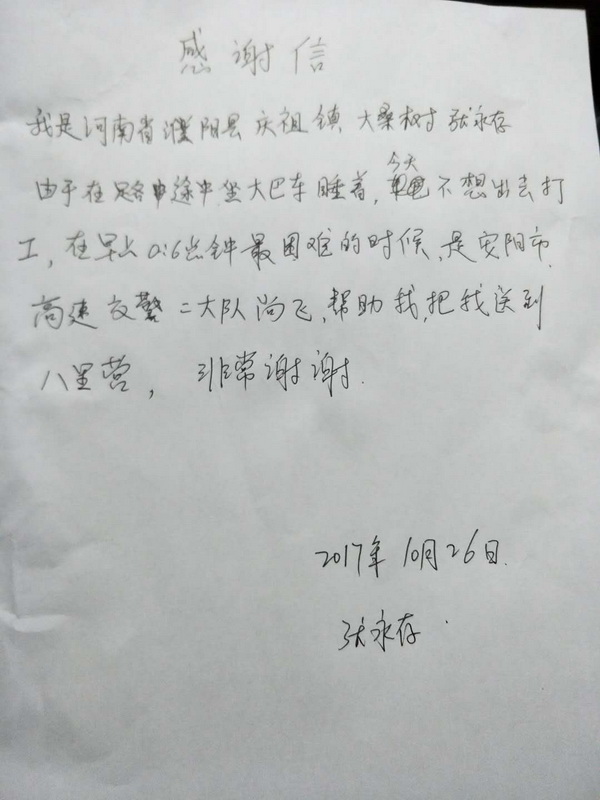 感谢信
我是河南省濮阳县庆祖镇大桑树张永存
由于在路中途中坐大巴车睡着,今天不想出去打
工,在早上0:6分钟最困难的时候,是安阳市
高速交警二大队尚飞,帮助我,把我送到
八里营,非常谢谢.
2017年10月26日.
张永存.